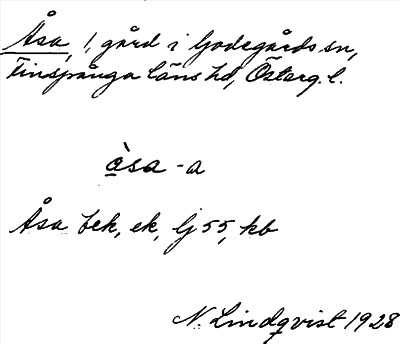 Åsa, 1, gård i Godegårds sn,
Finspånga läns hd, Österg. l.
å̱̀sa -a
Åsa bek, ek, lj 55, kb
N. Lindqvist 1928